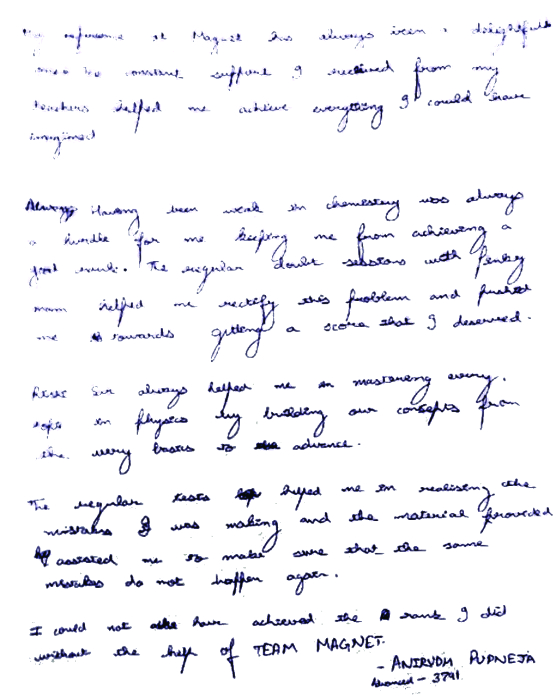 My experience at Magnet has always been a delightful
one. The constant support I received from my
teachers helped me achieve everything I could have
imagined
Having been weak in chemistry was always
a hurdle for me keeping me from achieving a
good rank. The regular doubt sessions with
mam helped me rectify this problem and pushed
me towards getting a score that I deserved.
Sir always helped me in mastering every
topic in physics by building our concepts from
the very basics to advance.
The regular tests helped me in realising the
mistakes I was making and the material provided
assisted me to make sure that the same
mistakes do not happen again.
I could not have achieved the rank I did
without the help of TEAM MAGNET.
- ANIRUDH PUPNEJA
Advanced - 3791